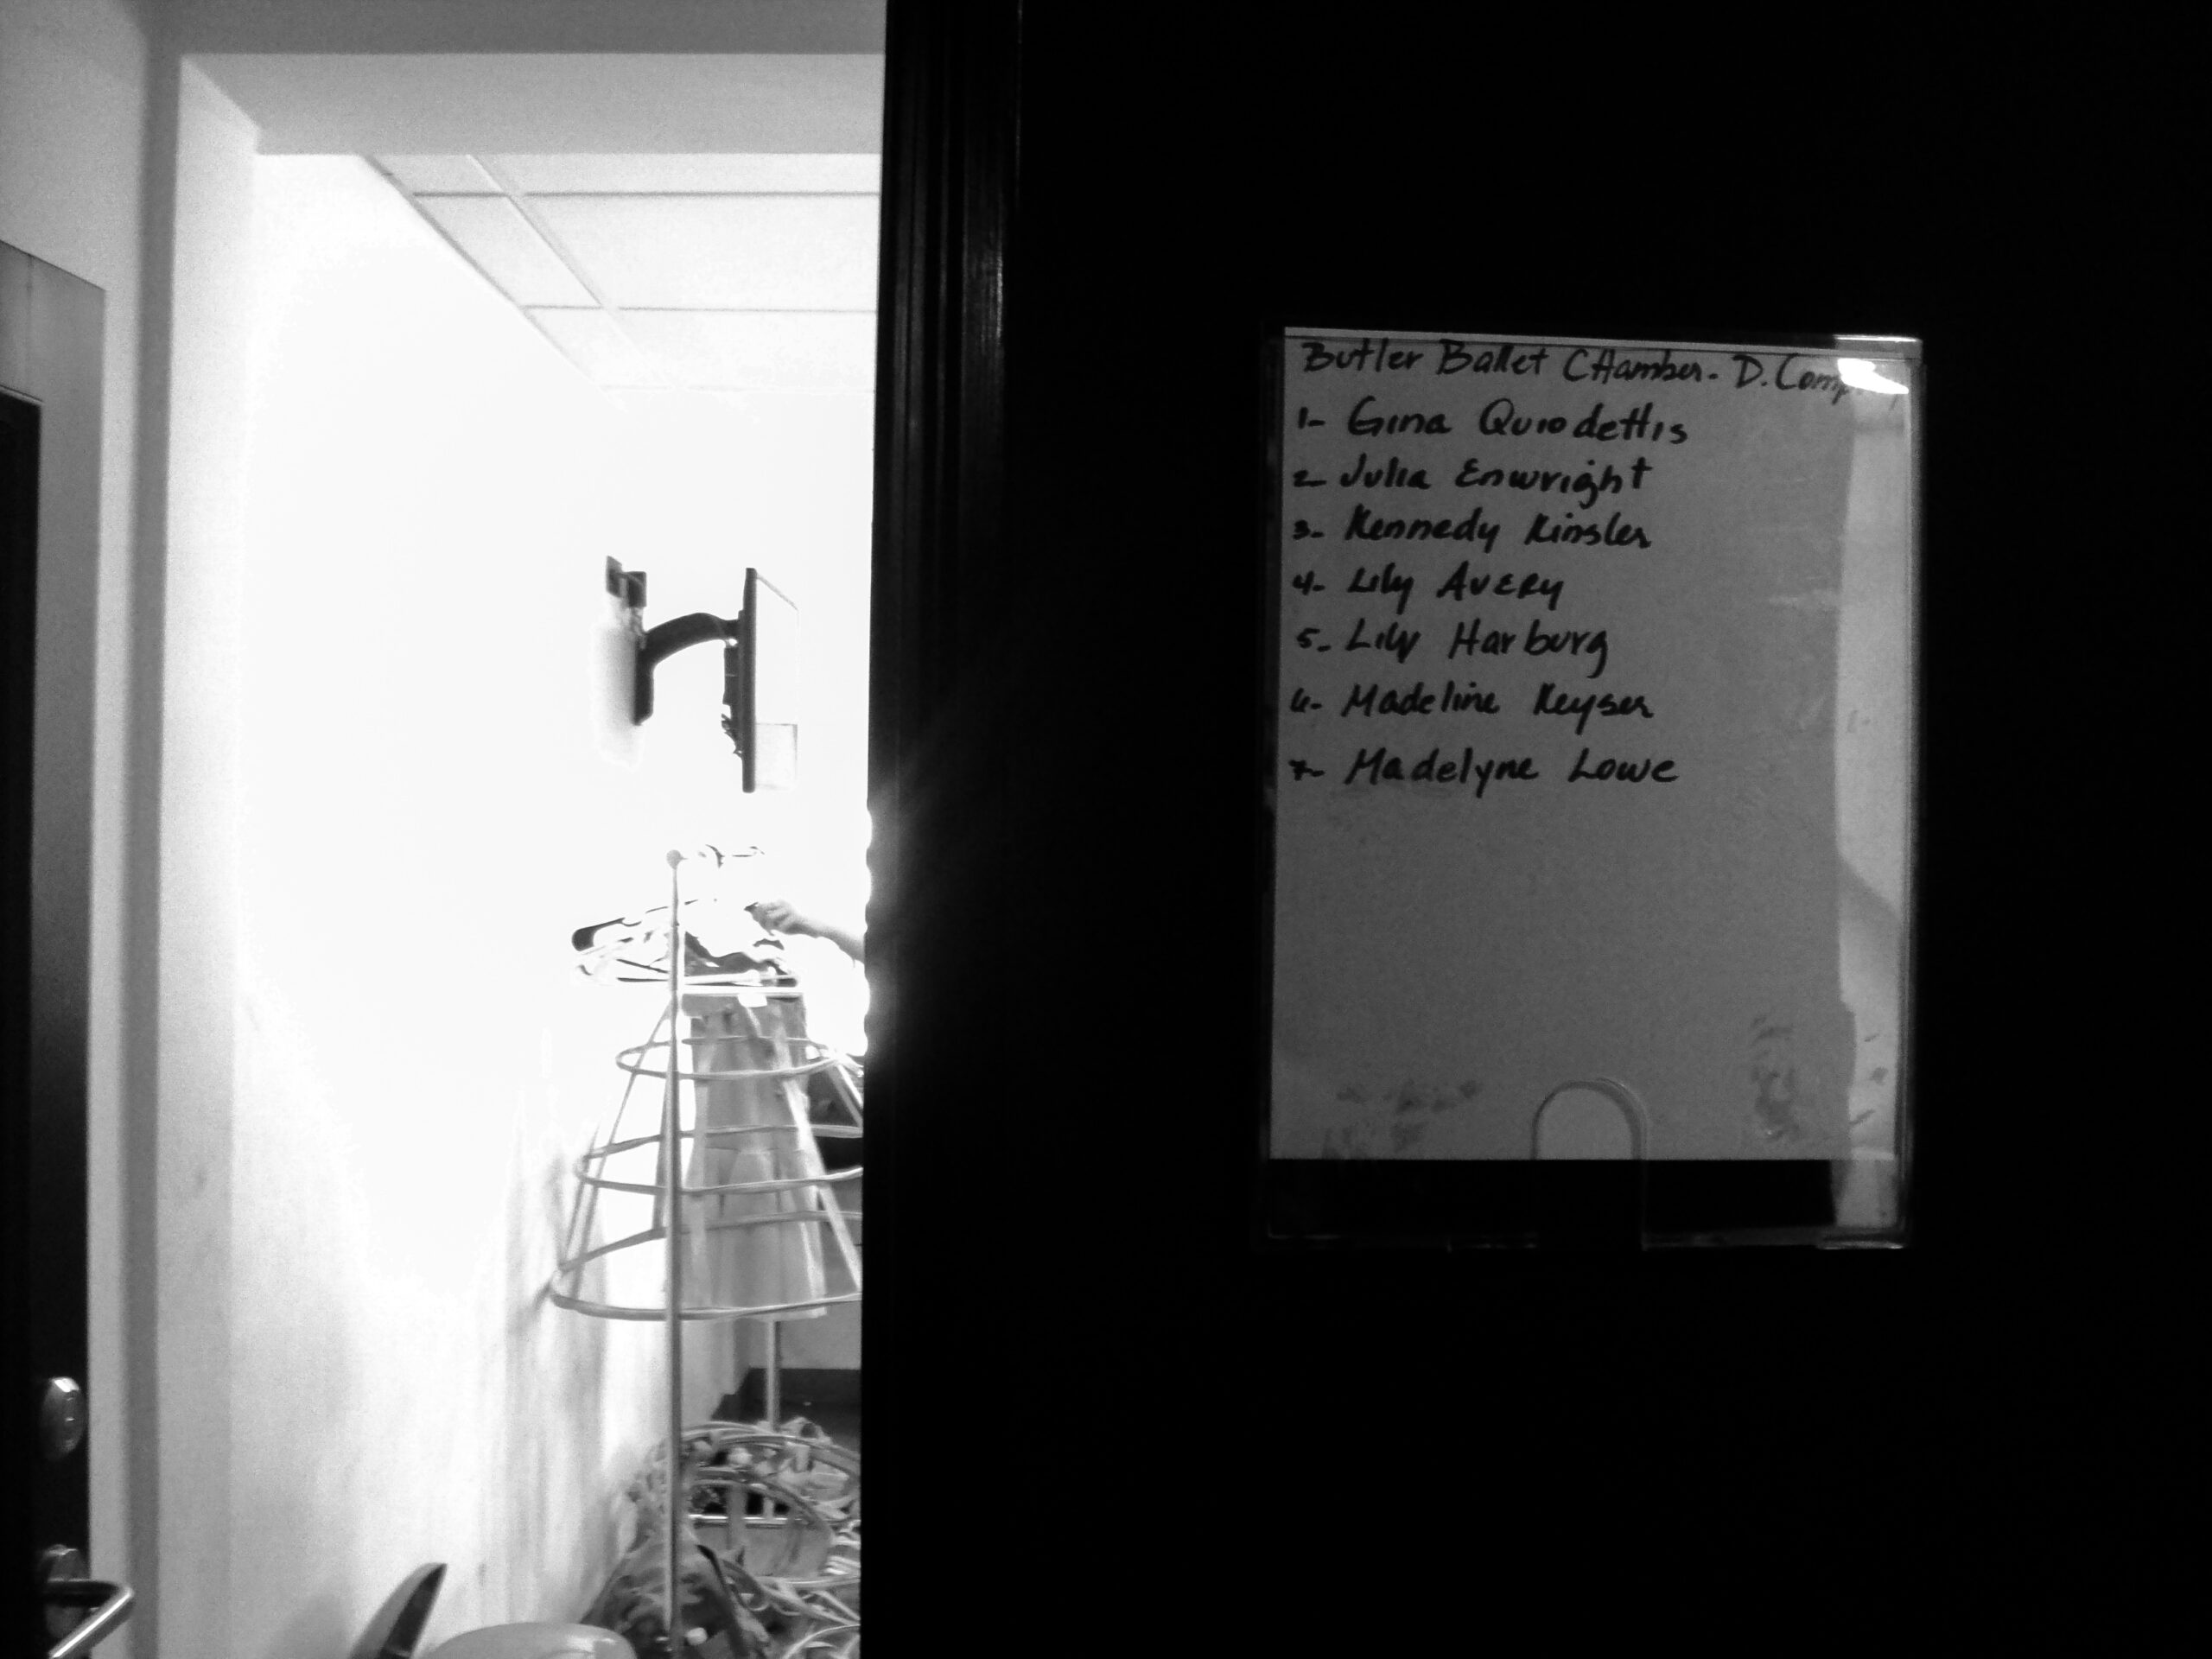 Butler Ballet CHamber - D. Comp
1- Gina Quiodettis
2- Julia Enwright
3- Kennedy Kinsler
4- Lily AVERy
5- Lily Harburg
6- Madeline Keyser
7- Madelyne Lowe